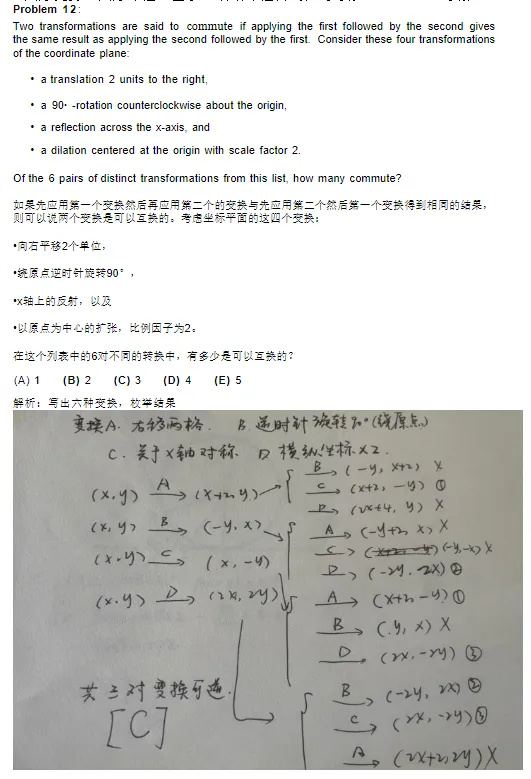 Problem 12:
Two transformations are said to commute if applying the first followed by the second gives
the same result as applying the second followed by the first. Consider these four transformations
of the coordinate plane:
• a translation 2 units to the right,
• a 90° -rotation counterclockwise about the origin,
• a reflection across the x-axis, and
• a dilation centered at the origin with scale factor 2.
Of the 6 pairs of distinct transformations from this list, how many commute?
如果先应用第一个变换然后再应用第二个的变换与先应用第二个然后第一个变换得到相同的结果，
则可以说两个变换是可以互换的。考虑坐标平面的这四个变换：
•向右平移2个单位，
•绕原点逆时针旋转90°，
•x轴上的反射，以及
•以原点为中心的扩张，比例因子为2。
在这个列表中的6对不同的转换中，有多少是可以互换的？
(A) 1 (B) 2 (C) 3 (D) 4 (E) 5
解析：写出六种变换，枚举结果
变换A. 右移两格. B. 逆时针旋转90°(绕原点)
C. 关于x轴对称 D 横纵坐标×2.
(x,y) A→ (x+2,y)
B→ (-y, x+2) X
C→ (x+2, -y) ①
D→ (2x+4, y) X
(x,y) B→ (-y, x)
A→ (-y+2, x) X
C→ (-y,-x) X
D→ (-2y, 2x) ②
(x,y) C→ (x, -y)
A→ (x+2, -y) ①
B→ (y, x) X
D→ (2x, -2y) ③
(x,y) D→ (2x, 2y)
B→ (-2y, 2x) ②
C→ (2x, -2y) ③
A→ (2x+2, 2y) X
共三对变换可逆.
[C]